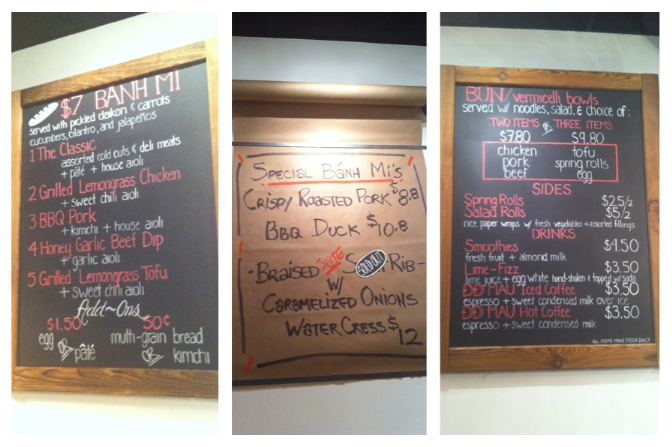 $7 BANH MI
served with pickled daikon & carrots
cucumbers, cilantro, and jalapeños
1 The Classic
assorted cold cuts & deli meats
+ pâté + house aioli
2 Grilled Lemongrass Chicken
+ sweet chili aioli
3 BBQ Pork
+ kimchi + house aioli
4 Honey Garlic Beef Dip
+ garlic aioli
5 Grilled Lemongrass Tofu
+ sweet chili aioli
Add~Ons
$1.50 50¢
egg multi-grain bread
pâté kimchi
SPECIAL BÁNH MI'S
CRISPY ROASTED PORK $8.8
BBQ DUCK $10.8
- BRAISED SHORT RIB -
SOLD OUT
W/
CARAMELIZED ONIONS
WATER CRESS $12
BUN/vermicelli bowls
served w/ noodles, salad, & choice of:
TWO ITEMS or THREE ITEMS
$7.80 $9.80
chicken tofu
pork spring rolls
beef egg
SIDES
Spring Rolls $2.5/2
Salad Rolls $5/2
rice paper wraps w/ fresh vegetables + assorted fillings
DRINKS
Smoothies $4.50
fresh fruit + almond milk
Lime-Fizz $3.50
lime juice + egg white hand-shaken & topped w/ soda
DD MAU Iced Coffee $3.50
espresso + sweet condensed milk over ice
DD MAU Hot Coffee $3.50
espresso + sweet condensed milk
ALL ITEMS MADE FRESH DAILY